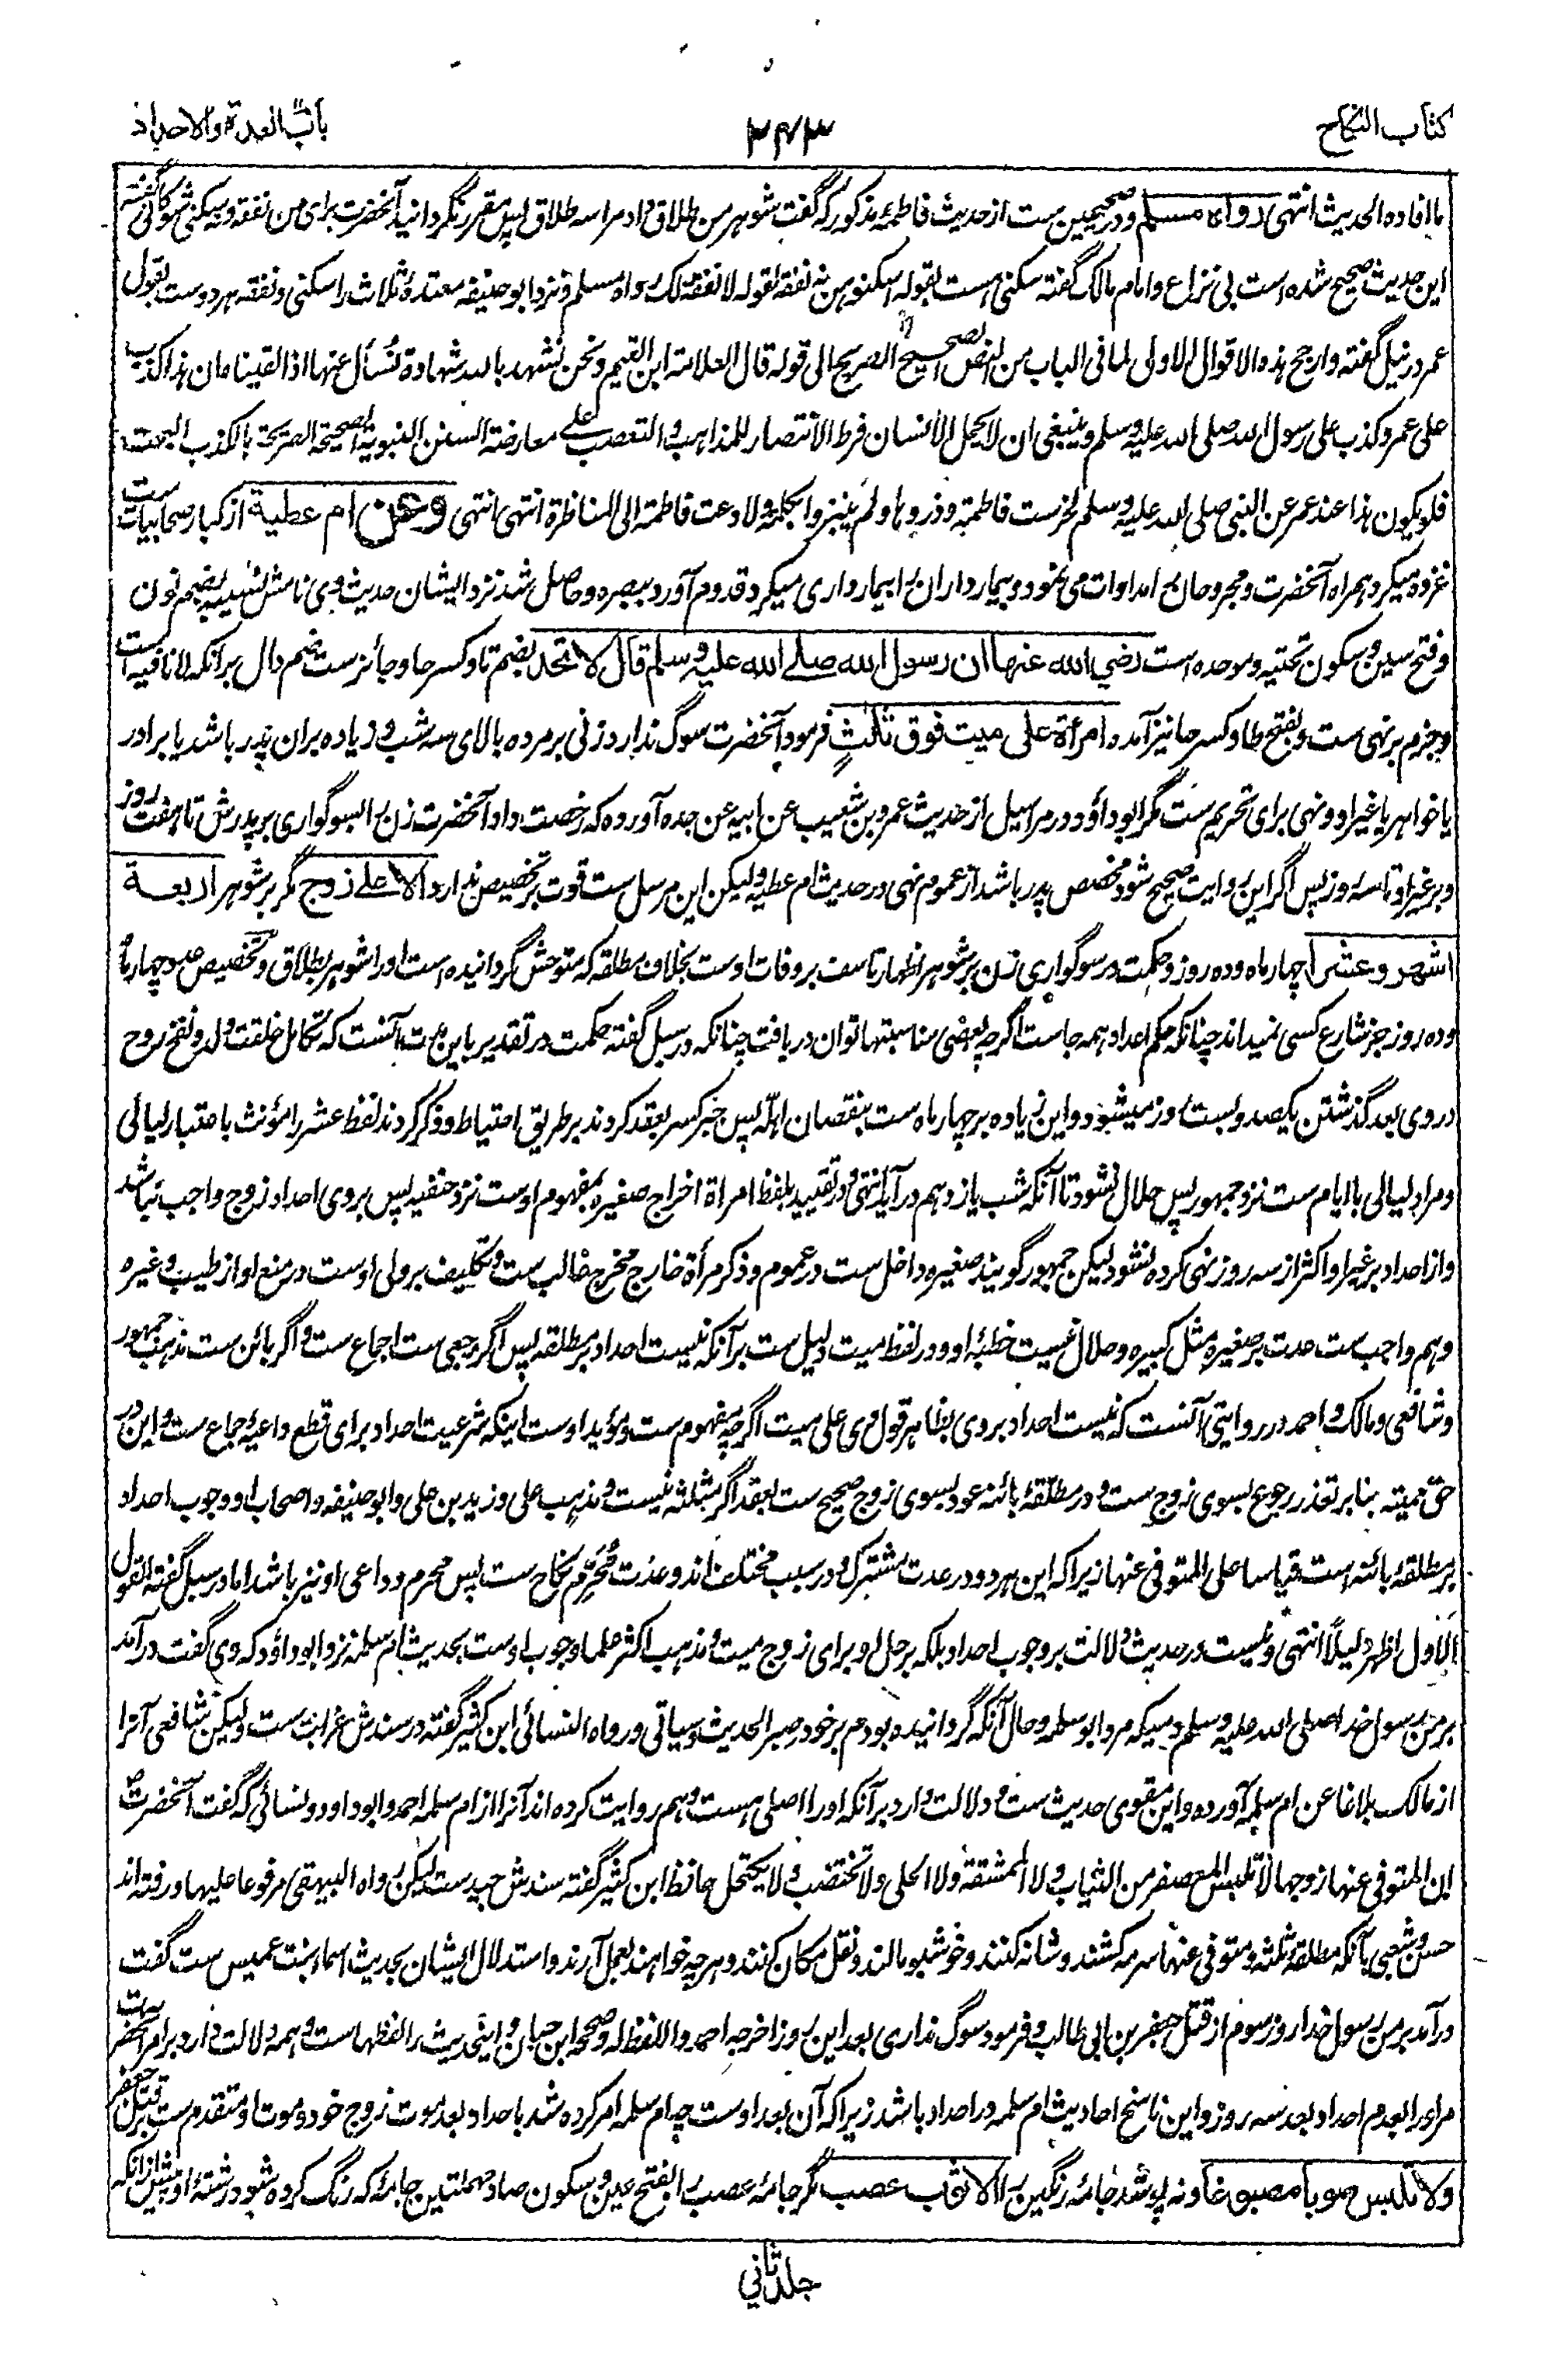 كتاب النكاح
۳۴۳
باب العدة والاحداد
ما افاده الحديث انتهى رواه مسلم و در صحيحين ست از حديث فاطمهٔ مذكور كه گفت شوهر من طلاق داد مرا سه طلاق پس مقرر نگردانيد آنحضرت برای من نفقه و نه سكنی شوكانی گفته
اين حديث صحيح شده است بی نزاع و امام مالك گفته سكنی ست لقوله اسكنوهن نه نفقه لقوله لا نفقة لك رواه مسلم و نزد ابو حنيفه معتدهٔ ثلاث را سكنی و نفقه هر دوست بقول
عمر در نيل گفته و ارجح هذه الاقوال الاول لما فی الباب من النص الصحيح الصريح الی قوله قال العلامة ابن القيم و نحن نشهد بالله شهادة نُسأل عنها اذا لقيناه ان هذا كذب
علی عمر و كذب علی رسول الله صلی الله عليه وسلم و ينبغی ان لا يحمل الانسان فرط الانتصار للمذاهب و التعصب علی معارضة السنن النبوية الصحيحة الصريحة بالكذب البحت
فلو يكون هذا عند عمر عن النبی صلی الله عليه وسلم لخرست فاطمة و ذووها و لم ينبزوا بكلمة و لا دعت فاطمة الی المناظرة انتهى انتهى وعن ام عطية از كبار صحابيات ست
غزوه ميكرد همراه آنحضرت و مجروحان را مداوات می نمود و بيمارداران را بيمارداری ميكرد قدوم آورد ببصره و حاصل شد نزد ايشان حديث وی نامش نسيبه بضم نون
و فتح سين و سكون تحتيه و موحده است رضي الله عنها ان رسول الله صلے الله عليه وسلم قال لا تحد بضم تا و كسر حا و جائز ست ضم دال برانكه لا نافيه است
و جزم بر نهی ست و بفتح تا و كسر حا نيز آمده امرأة على ميت فوق ثلث فرمود آنحضرت سوگ ندارد زنی بر مرده بالای سه شب و زياده بران پدر باشد يا برادر
يا خواهر يا غير او و نهی برای تحريم ست مگر ابو داؤد در مراسيل از حديث عمرو بن شعيب عن ابيه عن جده آورده كه رخصت داد آنحضرت زن را بسوگواری بر پدرش تا هفت روز
و بر غير او تا سه روز پس اگر اين روايت صحيح شود مخصص پدر باشد از عموم نهی در حديث ام عطيه وليكن اين مرسل ست قوت تخصيص ندارد الا علے زوج مگر بر شوهر اربعة
اشهر وعشرا چهار ماه و ده روز و حكمت در سوگواری زن بر شوهر اظهار تاسف بر وفات اوست بخلاف مطلقه كه متوحش گردانيده است او را شوهر بطلاق و تخصيص حد چهار ماه
و ده روز جز شارع كسی نميداند چنانكه حكم اعداد همه جاست اگرچه بعضی مناسبتها توان دريافت چنانكه در سبل گفته حكمت در تقدير باين مدت آنست كه تكامل خلقت ولد و نفخ روح
در وی بعد گذشتن يكصد و بست روز ميشود و اين زياده بر چهار ماه ست بنقصان اهله پس جبر كسر بعقد كردند بر طريق احتياط و ذكر كردند لفظ عشر را مؤنث باعتبار ليالی
و مراد ليالی با ايام ست نزد جمهور پس حلال نشود تا آنكه شب يازدهم در آيد انتهى و در تقييد بلفظ امراة اخراج صغيره بمفهوم اوست نزد حنفيه پس بر وی احداد زوج واجب نباشد
و از احداد بر غير او اكثر از سه روز نهی كرده نشود ليكن جمهور گويند صغيره داخل ست در عموم و ذكر مرأة خارج مخرج غالب ست و تكليف بر ولی اوست در منع او از طيب و غيره
و هم واجب ست عدت بر صغيره مثل كبيره و حلال نيست خطبهٔ او و در لفظ ميت دليل ست بر آنكه نيست احداد بر مطلقه پس اگر رجعی ست اجماع ست و اگر بائن ست مذهب جمهور
و شافعی و مالك و احمد در روايتی آنست كه نيست احداد بر وی بظاهر قول وی علی ميت اگرچه مفهوم ست و مؤيد اوست اينكه شرعيت احداد برای قطع داعيهٔ جماع ست و اين در
حق ميته بنابر تعذر رجوع بسوی زوج ست و در مطلقهٔ بائنه عود بسوی زوج صحيح ست بعقد اگر مثلثه نيست و مذهب علی و زيد بن علی و ابو حنيفه و اصحاب او وجوب احداد
بر مطلقهٔ بائنه است قياسا علی المتوفی عنها زيرا كه اين هر دو در عدت مشترك و در سبب مختلف اند و عدت مُحَرِّم نكاح ست پس محرم دواعی او نيز باشد اما در سبل گفته القول
الاول اظهر دليلًا انتهى و نيست در حديث دلالت بر وجوب احداد بلكه بر حل او برای زوج ميت و مذهب اكثر علما وجوب اوست بحديث ام سلمه نزد ابو داؤد كه وی گفت در آمد
بر من رسول خدا صلی الله عليه وسلم وقتيكه مرد ابو سلمه و حال آنكه گردانيده بودم بر خود صبر الحديث و سياتی و رواه النسائی ابن كثير گفته در سندش غرابت ست وليكن شافعی آنرا
از مالك بلاغا عن ام سلمه آورده و اين مقوی حديث ست و دلالت دارد بر آنكه او را اصلی هست و هم روايت كرده اند آنرا از ام سلمه احمد و ابو داود و نسائی كه گفت آنحضرت
ان المتوفی عنها زوجها لا تلبس المعصفر من الثياب و لا الممشقة و لا الحلی و لا تختضب و لا تكتحل حافظ ابن كثير گفته سندش جيد ست ليكن رواه البيهقی مرفوعا عليها و رفته اند
حسن و شعبی بآنكه مطلقهٔ ثلثه و متوفی عنها سرمه كشند و شانه كنند و خوشبو مالند و نقل مكان كنند و هر چه خواهند بعمل آرند و استدلال ايشان بحديث اسماء بنت عميس ست گفت
در آمد بر من رسول خدا روز سوم از قتل جعفر بن ابی طالب و فرمود سوگ نداری بعد اين روز اخرجه احمد و اللفظ له و صححه ابن حبان و اينحديث را لفظهاست و همه دلالت دارد بر امر آنحضرت
مر او را بعدم احداد بعد سه روز و اين ناسخ احاديث ام سلمه در احداد باشد زيرا كه آن بعد اوست چه ام سلمه امر كرده شد باحداد بعد موت زوج خود و موت او متقدم ست بر قتل جعفر
ولا تلبس ثوبا مصبوغا و نه پوشد جامهٔ رنگين را الا ثوب عصب مگر جامهٔ عصب را بفتح عين و سكون صاد مهملتين جامهٔ كه رنگ كرده شود رشتهٔ او پيش از آنكه
جلد ثاني